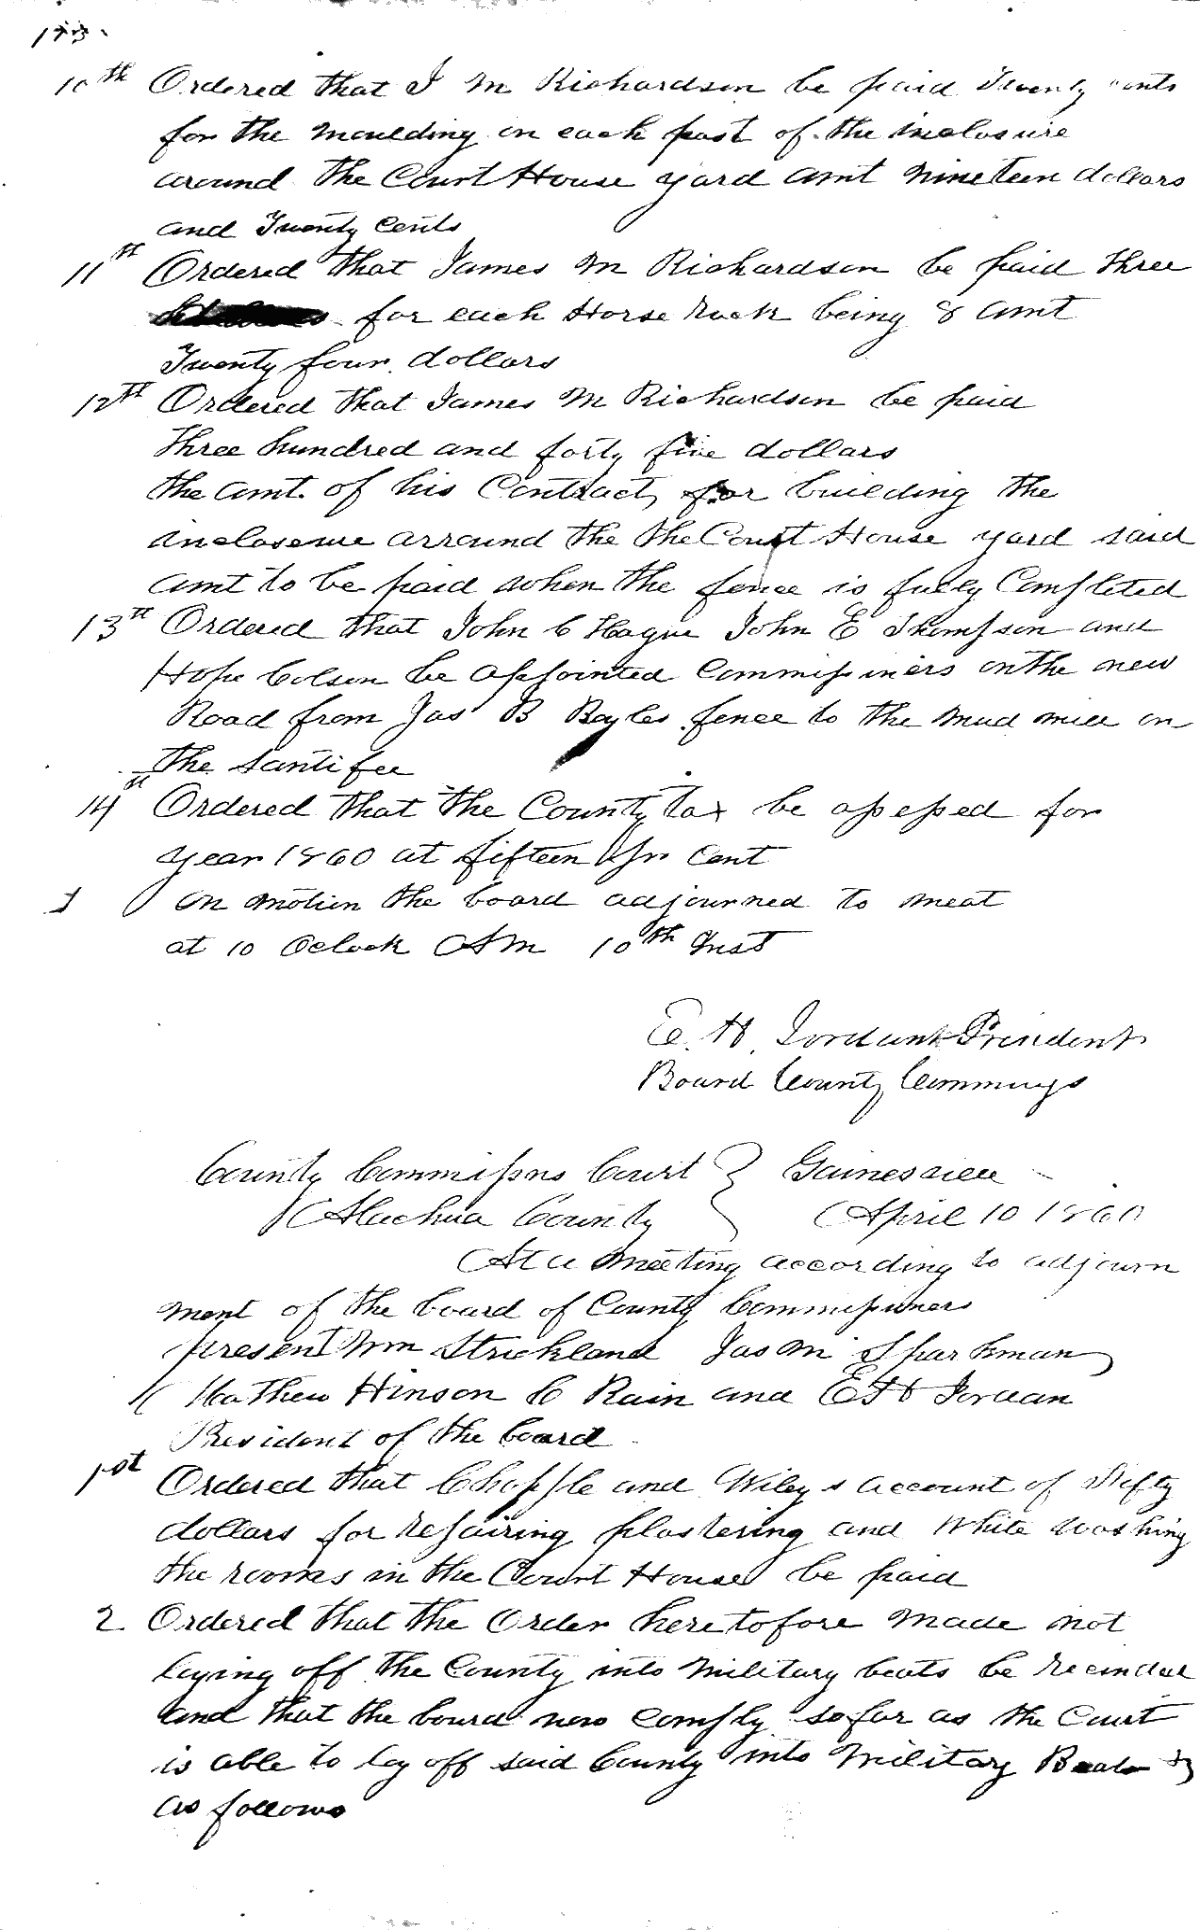 10th Ordered that J M Richardson be paid Twenty cents
for the moulding on each post of the inclosure
around the Court House yard amt nineteen dollars
and Twenty Cents
11th Ordered that James M Richardson be paid three
for each Horse rack being 8 amt
Twenty four dollars
12th Ordered that James M Richardson be paid
three hundred and forty five dollars
the amt. of his Contract, for building the
inclosure arround the the Court House yard said
amt to be paid when the fence is fully Completed
13th Ordered that John C Hague John E Thompson and
Hope Colson be appointed Commissiners on the new
Road from Jas B Bayles fence to the mud mill on
the Santifee
14th Ordered that the County tax be assessed for
year 1860 at fifteen pr Cent
On motion the board adjourned to meat
at 10 Oclock AM 10th Inst
E. H. Jordan President
Board County Commings
County Commissons Court } Gainesville
Alachua County } April 10 1860
At a meeting according to adjourn
ment of the board of County Commissiners
present Wm Strickland Jas M Sparkman
Mathew Hinson C Rain and E H Jordan
President of the board
1st Ordered that Chapple and Wileys account of Fifty
dollars for repairing plastering and White washing
the rooms in the Court House be paid
2 Ordered that the Order heretofore made not
laying off the County into Military beats be recinded
and that the board now comply so far as the Court
is able to lay off said County into Military Beats
as follows